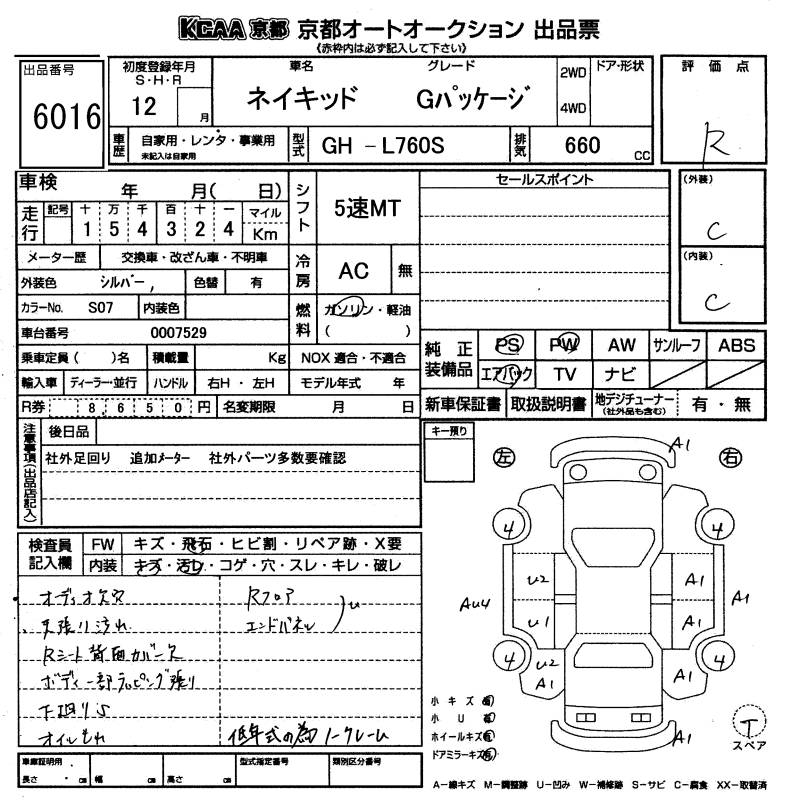 KCAA 京都 京都オートオークション 出品票
《赤枠内は必ず記入して下さい》
出品番号
6016
初度登録年月
S・H・R
12 月
車名 グレード
ネイキッド Gパッケージ
2WD
4WD
ドア・形状
評価点
R
車歴
自家用・レンタ・事業用
未記入は自家用
型式
GH － L760S
排気
660 cc
車検 年 月( 日)
シフト
5速MT
セールスポイント
(外装)
C
(内装)
C
走行
記号 十 万 千 百 十 一 マイル
1 5 4 3 2 4 Km
メーター歴 交換車・改ざん車・不明車
冷房
AC 無
外装色 シルバー, 色替 有
カラーNo. S07 内装色
燃料
ガソリン・軽油
( )
車台番号 0007529
乗車定員( )名 積載量 Kg NOX適合・不適合
輸入車 ディーラー・並行 ハンドル 右H・左H モデル年式 年
R券 8,650円 名変期限 月 日
純正装備品
PS PW AW サンルーフ ABS
エアバック TV ナビ
新車保証書 取扱説明書 地デジチューナー(社外品も含む) 有・無
注意事項(出品店記入)
後日品
社外足回り 追加メーター 社外パーツ多数要確認
キー預り
左 右
検査員記入欄
FW キズ・飛石・ヒビ割・リペア跡・X要
内装 キズ・汚レ・コゲ・穴・スレ・キレ・破レ
オーディオ欠品
天張り汚れ
Rシート背面カバー欠
ボディ一部ラッピング張り
下回りS
オイルもれ
Rフロア
エンドパネル
U
低年式の為ノークレーム
A1
4 4
U2 A1
AU4 A1
U1 A1
4 4
U2 A1
A1
A1
小キズ有
小U有
ホイールキズ有
ドアミラーキズ有
T
スペア
車庫証明用
長さ ・ cm 幅 cm 高さ cm
型式指定番号 類別区分番号
A－線キズ M－調整跡 U－凹み W－補修跡 S－サビ C－腐食 XX－取替済